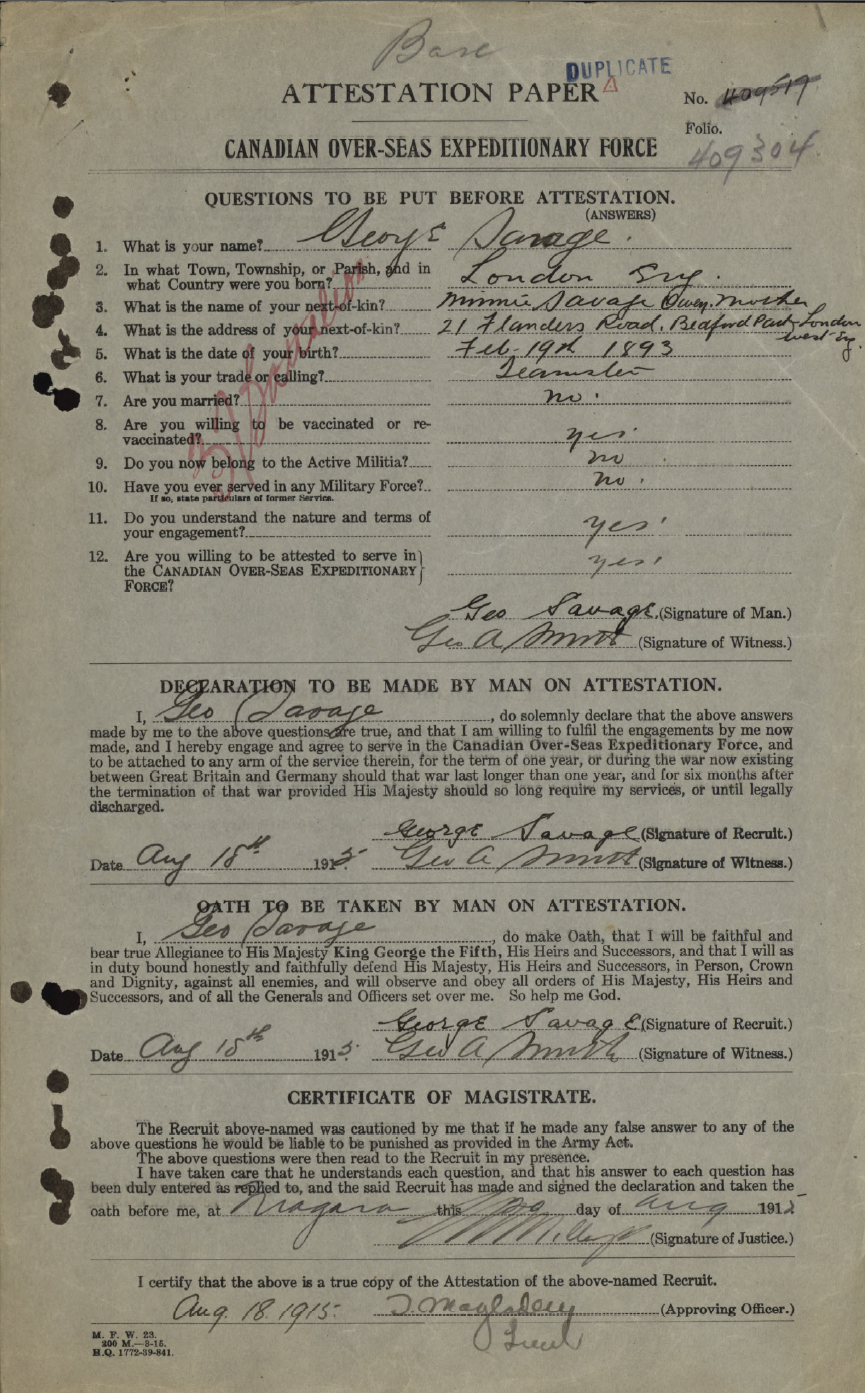 Base
DUPLICATE
ATTESTATION PAPER
No.
Folio.
409304
CANADIAN OVER-SEAS EXPEDITIONARY FORCE
QUESTIONS TO BE PUT BEFORE ATTESTATION.
(ANSWERS)
1. What is your name? George Savage.
2. In what Town, Township, or Parish, and in
what Country were you born? London Eng.
3. What is the name of your next-of-kin? Minnie Savage Owen. Mother
4. What is the address of your next-of-kin? 21 Flanders Road, Bedford Park London
west Eng.
5. What is the date of your birth? Feb. 19th 1893
6. What is your trade or calling? Teamster
7. Are you married? no.
8. Are you willing to be vaccinated or re-
vaccinated? yes
9. Do you now belong to the Active Militia? no
10. Have you ever served in any Military Force? no.
If so, state particulars of former Service.
11. Do you understand the nature and terms of
your engagement? yes
12. Are you willing to be attested to serve in
the CANADIAN OVER-SEAS EXPEDITIONARY yes
FORCE?
Geo Savage. (Signature of Man.)
Geo A Smith (Signature of Witness.)
DECLARATION TO BE MADE BY MAN ON ATTESTATION.
I, Geo Savage, do solemnly declare that the above answers
made by me to the above questions are true, and that I am willing to fulfil the engagements by me now
made, and I hereby engage and agree to serve in the Canadian Over-Seas Expeditionary Force, and
to be attached to any arm of the service therein, for the term of one year, or during the war now existing
between Great Britain and Germany should that war last longer than one year, and for six months after
the termination of that war provided His Majesty should so long require my services, or until legally
discharged.
George Savage (Signature of Recruit.)
Date Aug 18th 1915 Geo A Smith (Signature of Witness.)
OATH TO BE TAKEN BY MAN ON ATTESTATION.
I, Geo Savage, do make Oath, that I will be faithful and
bear true Allegiance to His Majesty King George the Fifth, His Heirs and Successors, and that I will as
in duty bound honestly and faithfully defend His Majesty, His Heirs and Successors, in Person, Crown
and Dignity, against all enemies, and will observe and obey all orders of His Majesty, His Heirs and
Successors, and of all the Generals and Officers set over me. So help me God.
George Savage (Signature of Recruit.)
Date Aug 18th 1915 Geo A Smith (Signature of Witness.)
CERTIFICATE OF MAGISTRATE.
The Recruit above-named was cautioned by me that if he made any false answer to any of the
above questions he would be liable to be punished as provided in the Army Act.
The above questions were then read to the Recruit in my presence.
I have taken care that he understands each question, and that his answer to each question has
been duly entered as replied to, and the said Recruit has made and signed the declaration and taken the
oath before me, at Niagara this day of Aug 1915
(Signature of Justice.)
I certify that the above is a true copy of the Attestation of the above-named Recruit.
Aug. 18. 1915 (Approving Officer.)
Lieut
M. F. W. 23.
200 M.—3-15.
H.Q. 1772-39-841.